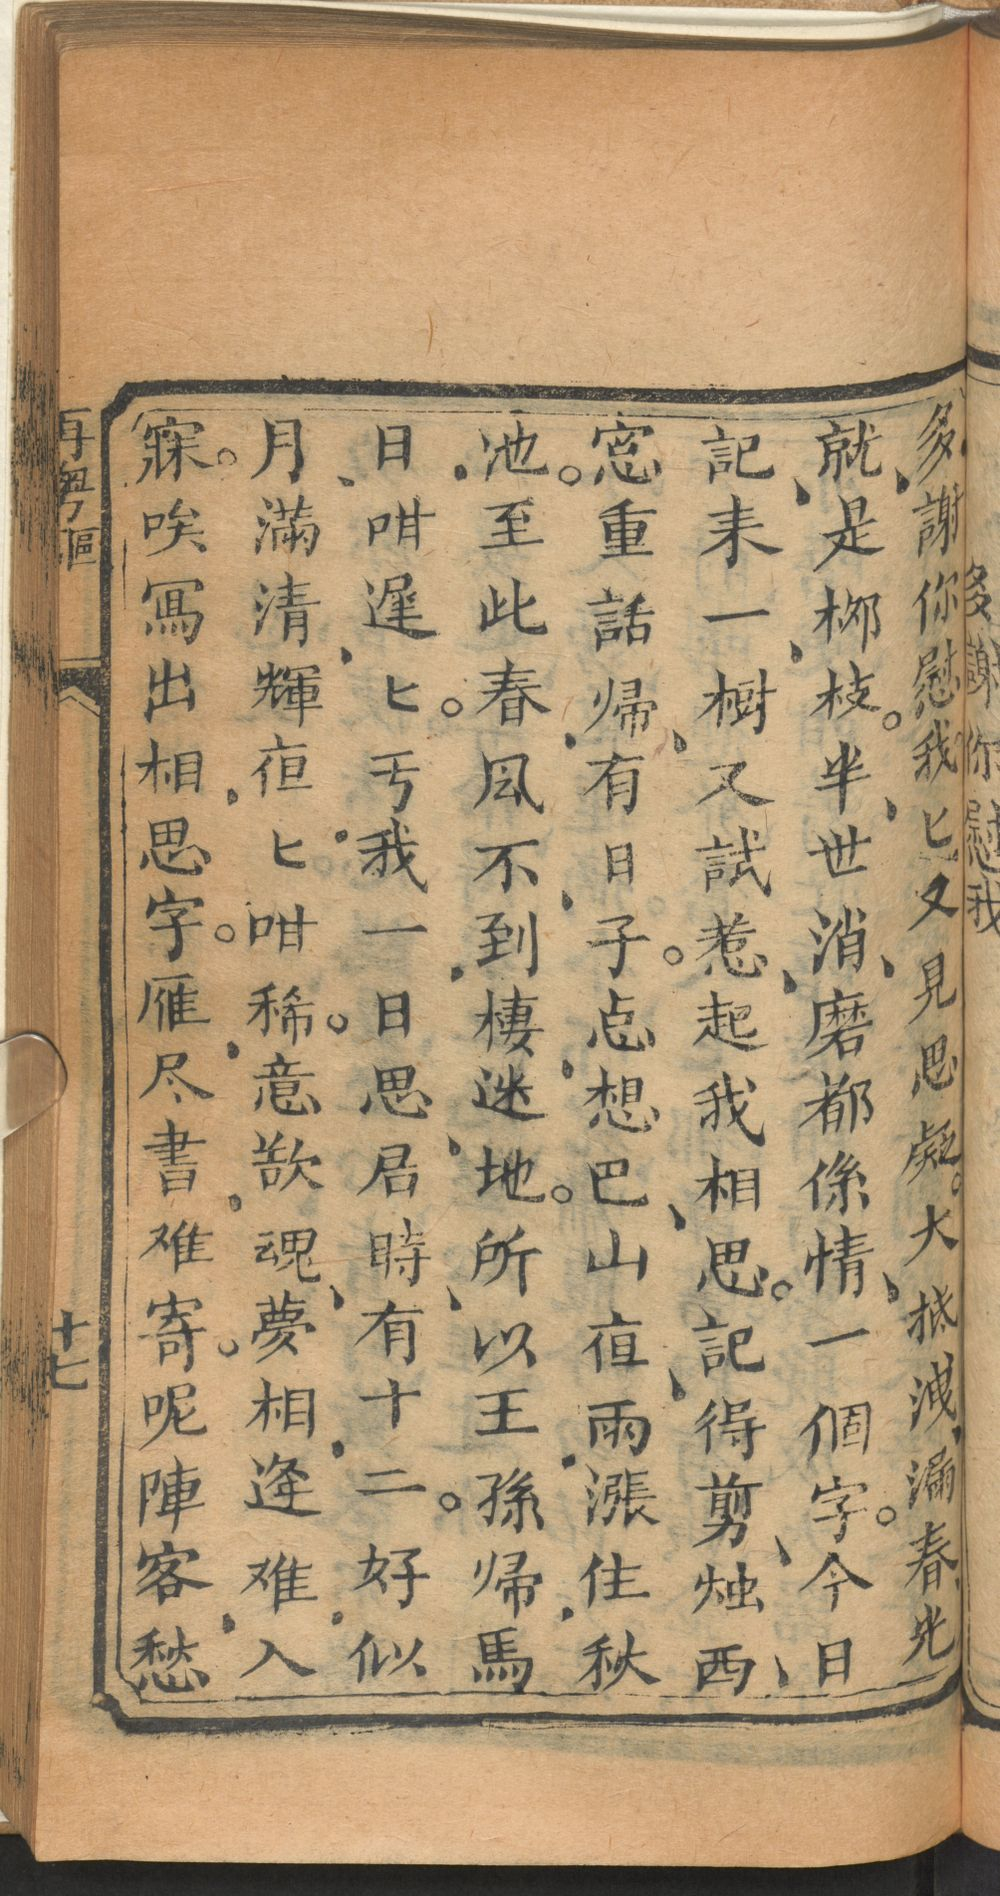 多謝你慰我
多謝你慰我匕又見思疑。大抵洩漏春光
就是柳枝。半世消磨都係情一個字。今日
記耒一樹又試惹起我相思。記得剪烛西
窓重話帰有日子。点想巴山夜雨漲住秋
池。至此春風不到棲迷地。所以王孫帰馬
日咁遲匕。亏我一日思君時有十二。好似
月滿清輝夜匕咁稀。意欲魂夢相逢难入
寐。唉寫出相思字。雁尽書难寄。呢陣客愁
再粤謳
十七